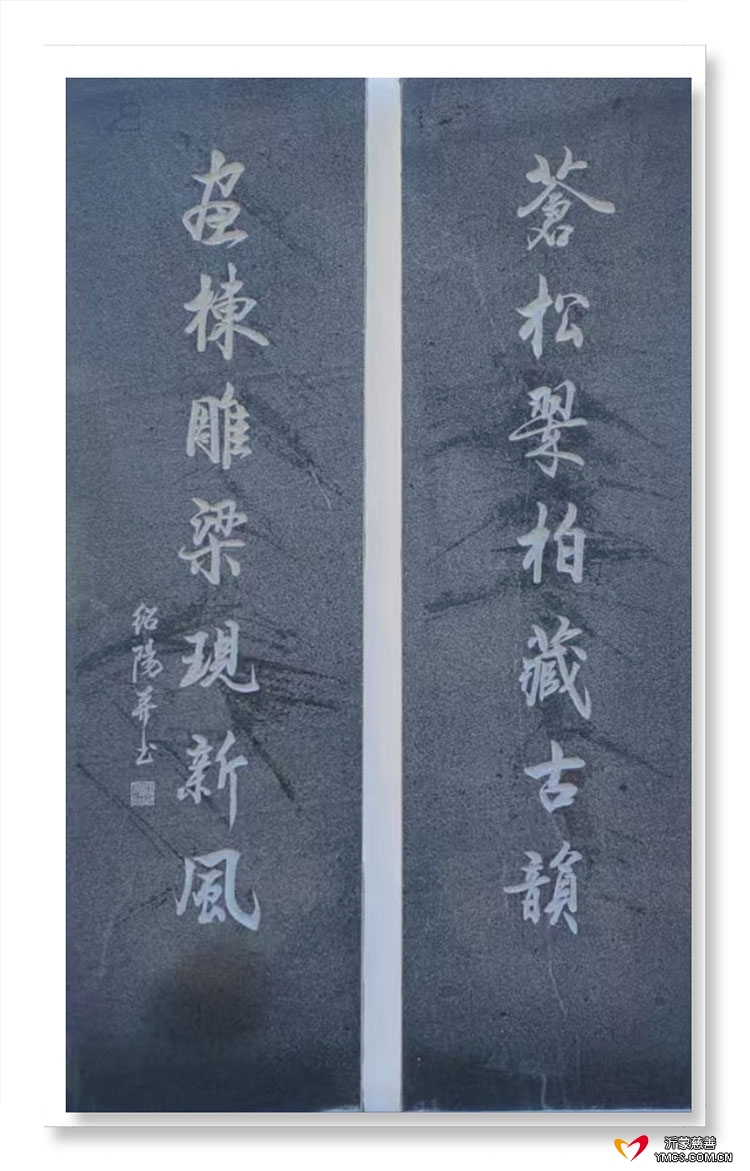 蒼松翠柏藏古韻
畫棟雕梁現新風
紹陽並书
沂蒙慈善
YMCS.COM.CN